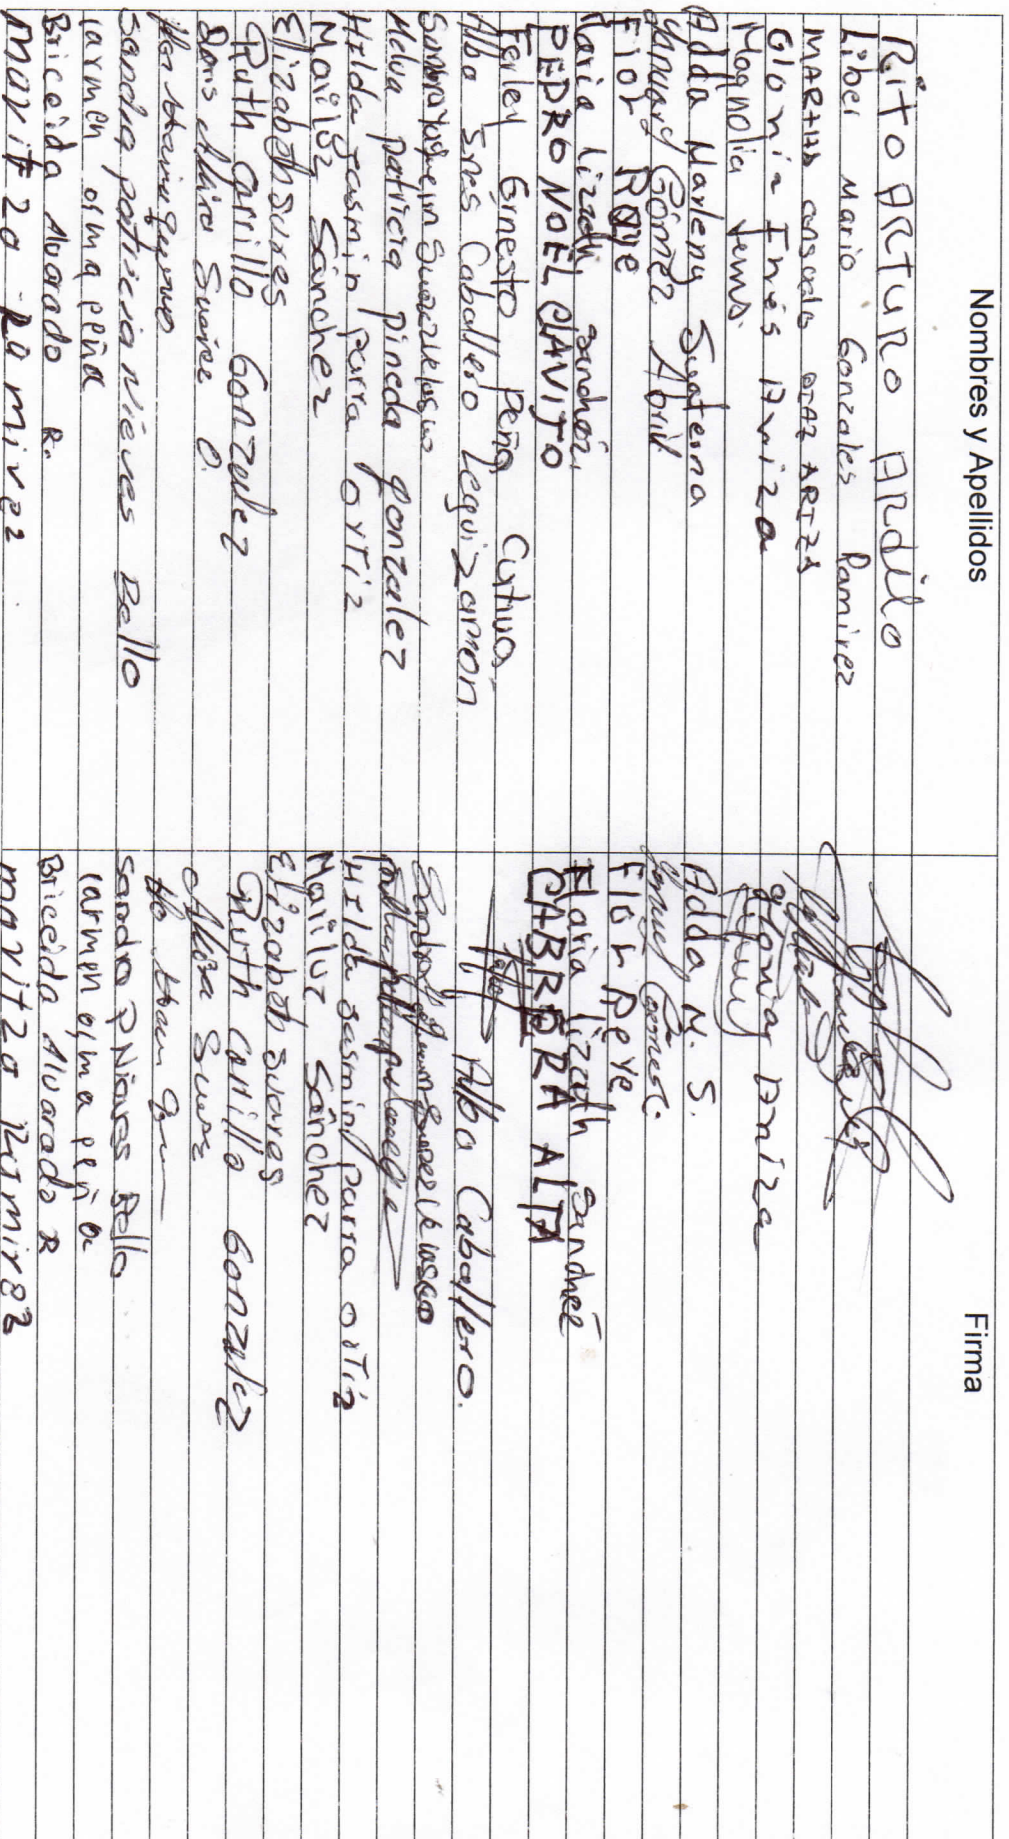 Nombres y Apellidos Firma
Rito ARTURO ARdilo
Liber Mario Gonzales Ramirez
MARTHA consuelo DIAZ ARIZA
Gloria Inés Ariza gloria Ariza
Magnolia
Adda Marleny Suaterna Adda M. S.
Yanury Gómez Abril Yanury Gómez
Flor Reye Flor Reye
Maria lizath Sanchéz Maria lizath Sanchéz
PEDRO NOEL CLAVIJO CABRERA ALTA
Ferley Ernesto Peña Cutiva
Alba Inés Caballero Leguizamon Alba Caballero.
Melva patricia pineda gonzalez
Hilda jasmin parra ortiz Hilda jasmin parra ortiz
Mariluz Sánchez Mariluz Sánchez
Elizabeth suares Elizabeth suares
Ruth Carrillo Gonzalez Ruth Carrillo Gonzalez
Doris Alira Suarez O. Alira Suarez
Sandra patricia nieves Bello Sandra P Nieves Bello
Carmen olma peña Carmen olma peña
Briceida Alvarado R. Briceida Alvarado R
maritza Ramirez maritza Ramirez